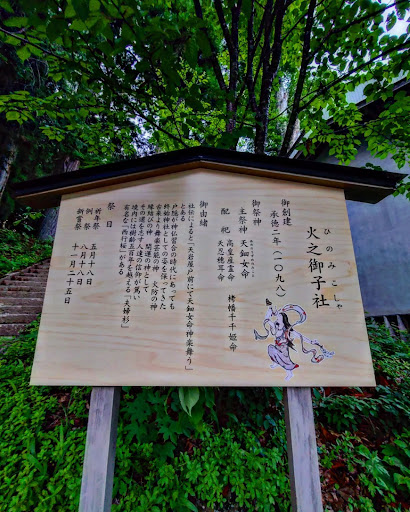 火之御子社
ひのみこしゃ
御創建
承徳二年（一〇九八）
御祭神
主祭神 天鈿女命
配祀 高皇産霊命 栲幡千千姫命
天忍穂耳命
御由緒
社伝によると「天岩屋戸前にて天鈿女命神楽舞う」
とある
戸隠が神仏習合の時代にあっても
終始神社としての
の神
縁結びの神 開運の神 火防の神
境内には樹齢五百年を越える「夫婦杉」
有名な「西行桜」がある
祭日
祈年祭 五月十八日
例祭 八月十八日
新嘗祭 十一月二十五日